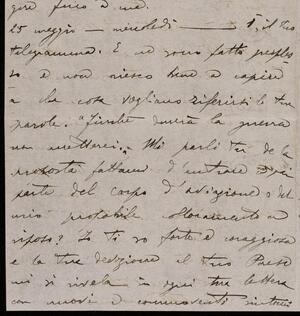 fino a me.
25 maggio – mercoledì – È il tuo
telegramma. E ne sono fatta perples
sa e non riesco bene a capire
a che cosa vogliano riferirsi le tue
parole. "Finché durerà la guerra
non metterci". Mi parli tu de la
proposta fattami d'entrare a far
parte del corpo d'aviazione o del
mio probabile allontanamento a
riposo? Io ti so forte e coraggiosa
e la tua devozione al tuo Paese
mi si rivela in ogni tua lettera
con nuovi e commoventi sintomi